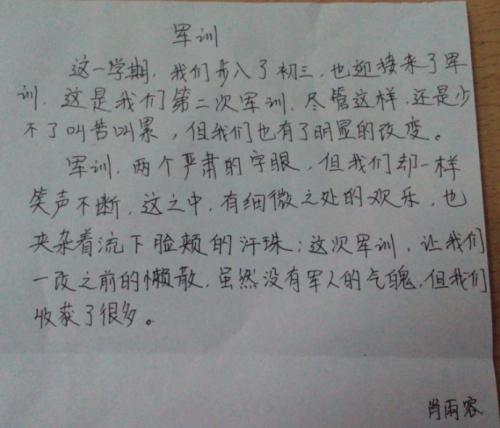 军训
这一学期，我们步入了初三，也迎接来了军
训，这是我们第二次军训，尽管这样，还是少
不了叫苦叫累，但我们也有了明显的改变。
军训，两个严肃的字眼，但我们却一样
笑声不断，这之中，有细微之处的欢乐，也
夹杂着流下脸颊的汗珠；这次军训，让我们
一改之前的懒散，虽然没有军人的气魄，但我们
收获了很多。
肖雨容